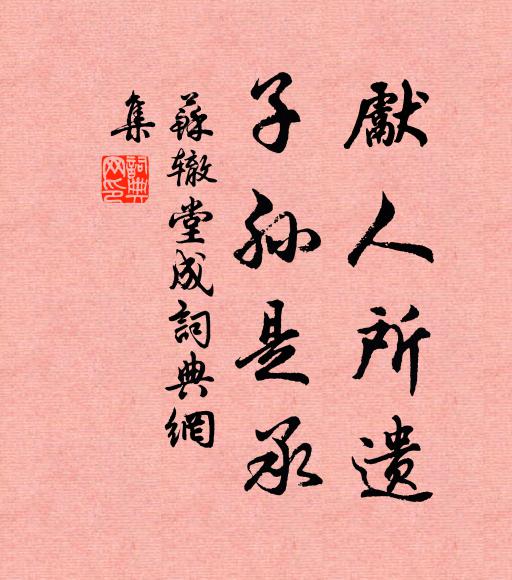 獻人所遺
子孫是承
蘇轍堂成詞典網
集
詞典
网印